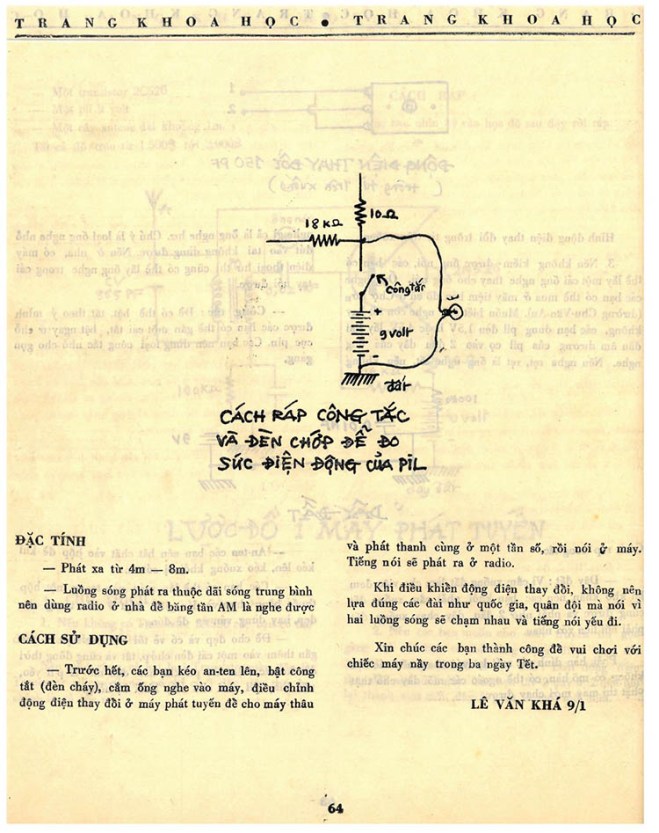 TRANG KHOA HỌC • TRANG KHOA HỌC
10Ω
18KΩ
công tắc
+
9 volt
-
đất
CÁCH RÁP CÔNG TẮC
VÀ ĐÈN CHỚP ĐỂ ĐO
SỨC ĐIỆN ĐỘNG CỦA PIL
ĐẶC TÍNH
— Phát xa từ 4m — 8m.
— Luồng sóng phát ra thuộc dãi sóng trung bình
nên dùng radio ở nhà để băng tần AM là nghe được
CÁCH SỬ DỤNG
— Trước hết, các bạn kéo an-ten lên, bật công
tắt (đèn cháy), cắm ống nghe vào máy, điều chỉnh
động điện thay đổi ở máy phát tuyến để cho máy thâu
và phát thanh cùng ở một tần số, rồi nói ở máy.
Tiếng nói sẽ phát ra ở radio.
Khi điều khiển động điện thay đổi, không nên
lựa đúng các đài như quốc gia, quân đội mà nói vì
hai luồng sóng sẽ chạm nhau và tiếng nói yếu đi.
Xin chúc các bạn thành công để vui chơi với
chiếc máy nầy trong ba ngày Tết.
LÊ VĂN KHÁ 9/1
64